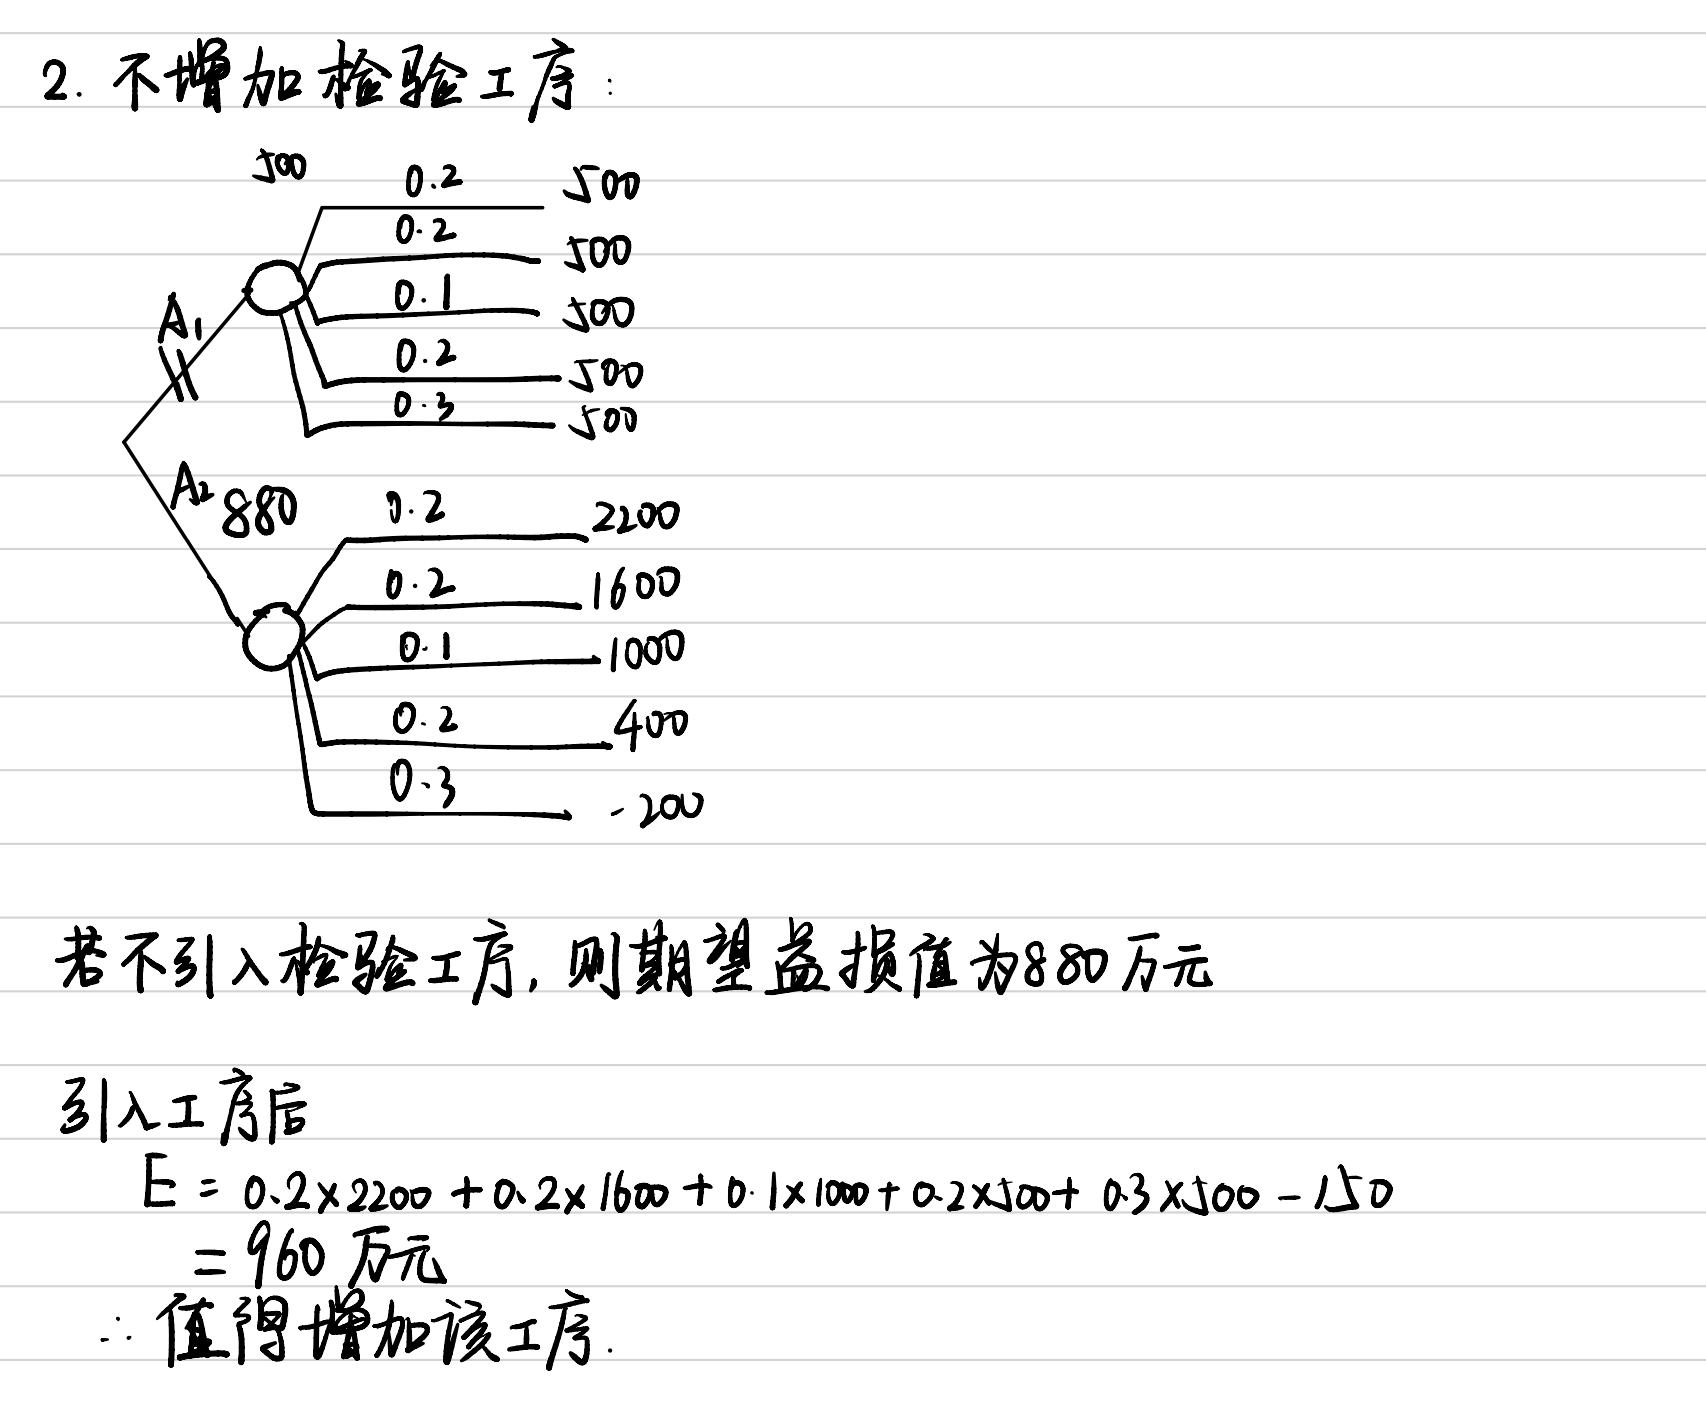 2. 不增加检验工序:
500
0.2 500
0.2 500
0.1 500
A₁
0.2 500
0.3 500
A₂ 880
0.2 2200
0.2 1600
0.1 1000
0.2 400
0.3 -200
若不引入检验工序, 则期望益损值为880万元
引入工序后
E = 0.2×2200 + 0.2×1600 + 0.1×1000 + 0.2×500 + 0.3×500 - 150
= 960 万元
∴ 值得增加该工序.